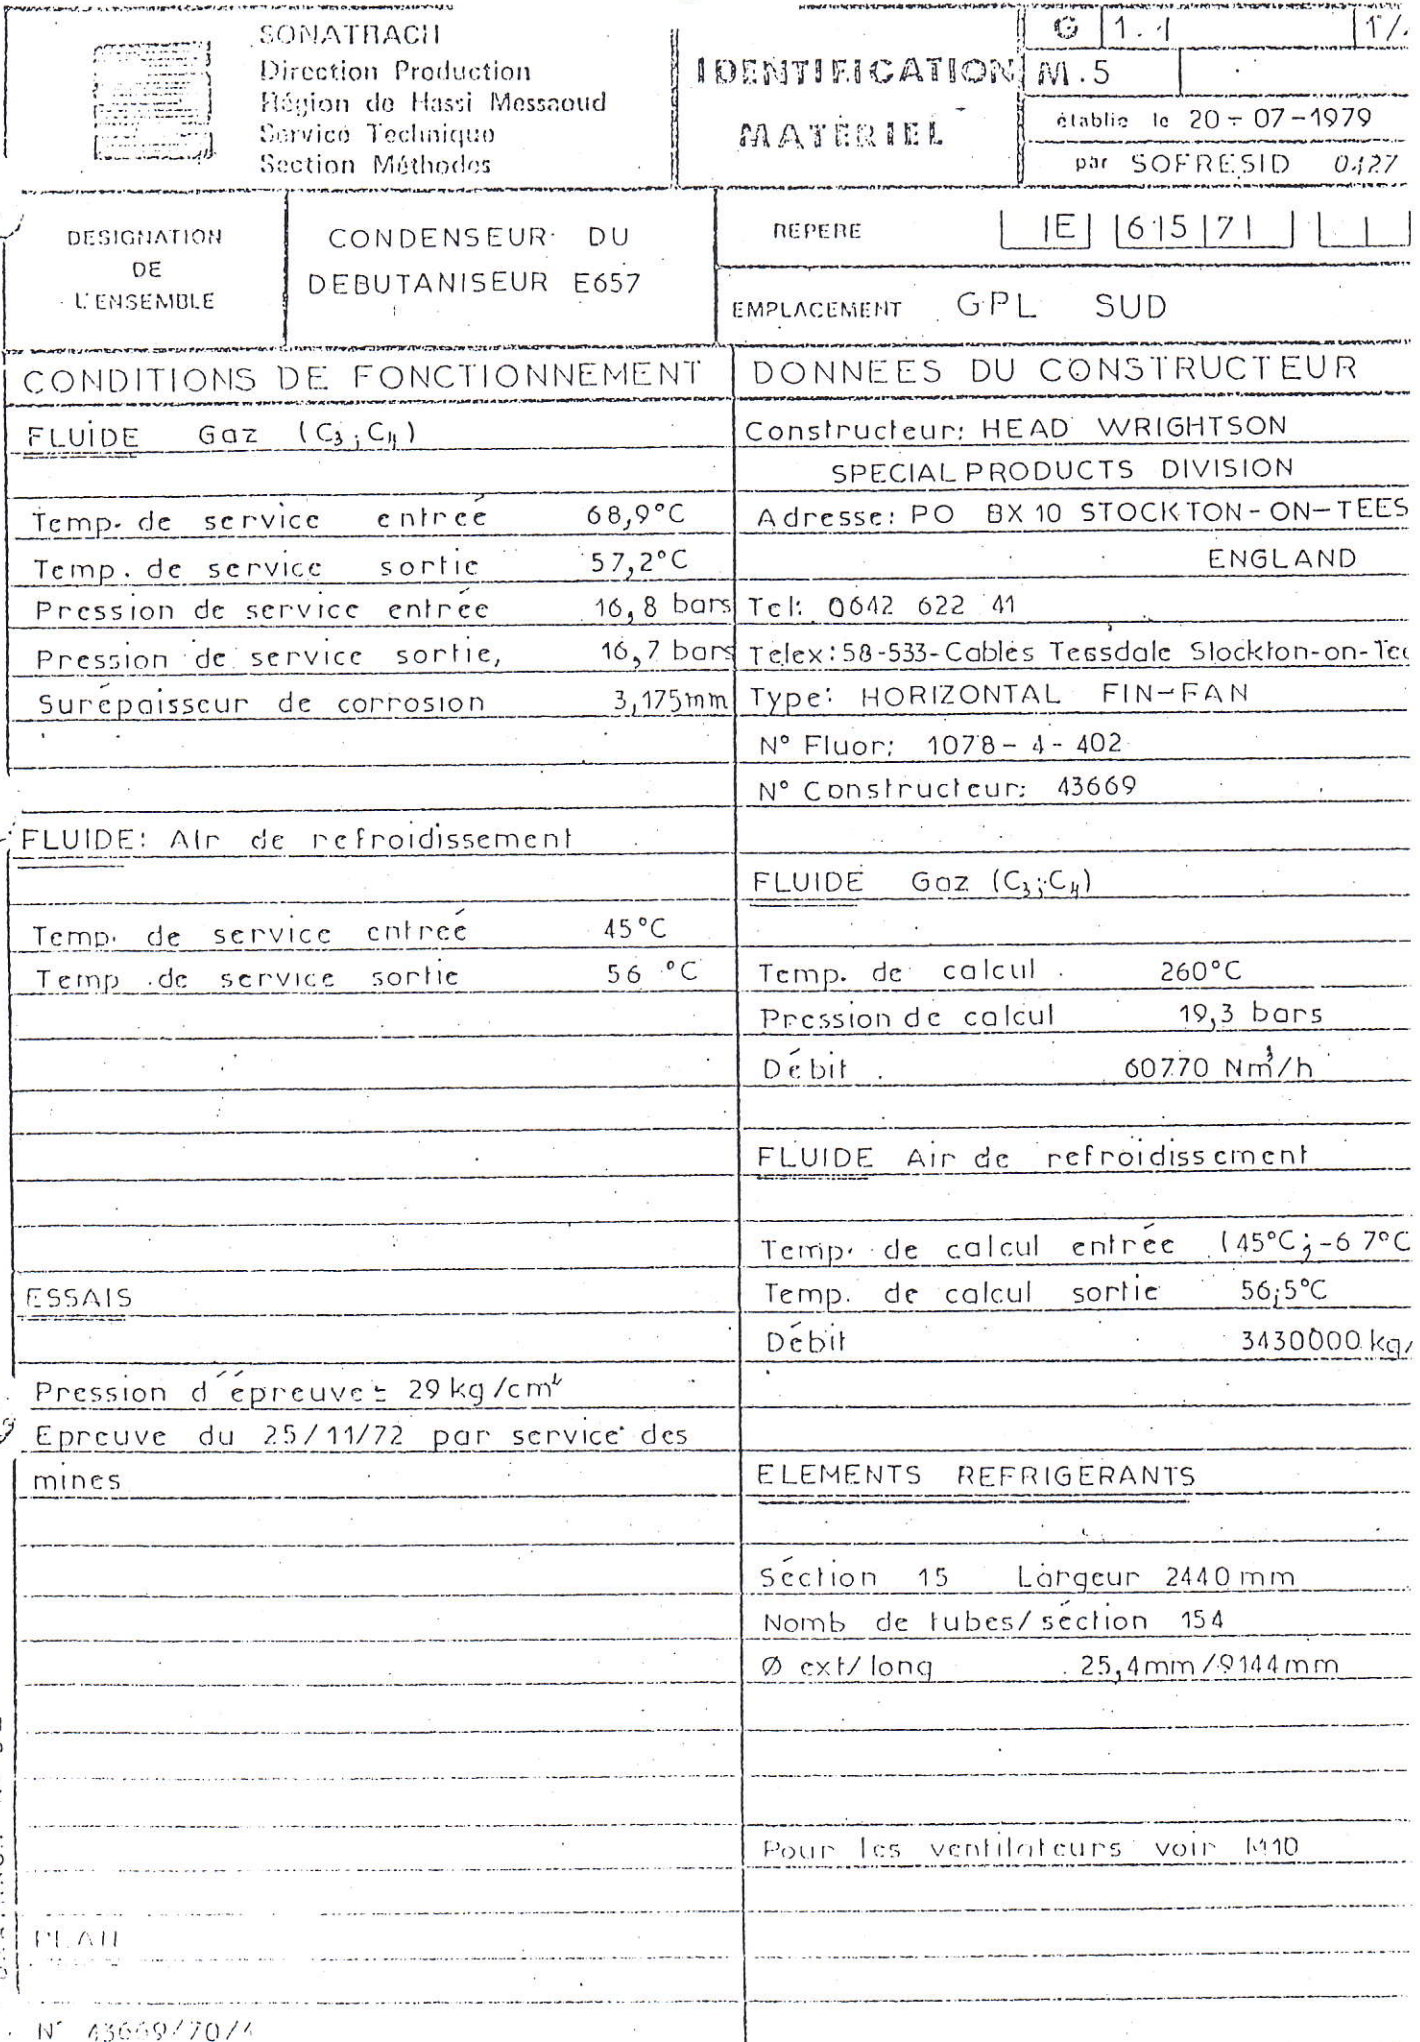 SONATRACH
Direction Production
Région de Hassi Messaoud
Service Technique
Section Méthodes
IDENTIFICATION
MATÉRIEL
G 1.1
M.5
établie le 20-07-1979
par SOFRESID 0427
DESIGNATION
DE
L'ENSEMBLE
CONDENSEUR DU
DEBUTANISEUR E657
REPERE E 657
EMPLACEMENT GPL SUD
CONDITIONS DE FONCTIONNEMENT
FLUIDE Gaz (C3;C4)
Temp. de service entrée 68,9°C
Temp. de service sortie 57,2°C
Pression de service entrée 16,8 bars
Pression de service sortie, 16,7 bars
Surépaisseur de corrosion 3,175mm
FLUIDE: Air de refroidissement
Temp. de service entrée 45°C
Temp. de service sortie 56 °C
ESSAIS
Pression d'épreuve = 29 kg/cm²
Epreuve du 25/11/72 par service des
mines
PLAN
N° 43669/70/4
DONNEES DU CONSTRUCTEUR
Constructeur: HEAD WRIGHTSON
SPECIAL PRODUCTS DIVISION
Adresse: PO BX 10 STOCKTON-ON-TEES
ENGLAND
Tel: 0642 622 41
Telex: 58-533-Cables Teesdale Stockton-on-Tee
Type: HORIZONTAL FIN-FAN
N° Fluor: 1078-4-402
N° Constructeur: 43669
FLUIDE Gaz (C3;C4)
Temp. de calcul 260°C
Pression de calcul 19,3 bars
Débit 60770 Nm³/h
FLUIDE Air de refroidissement
Temp. de calcul entrée (45°C;-6 7°C
Temp. de calcul sortie 56,5°C
Débit 3430000 kg/
ELEMENTS REFRIGERANTS
Séction 15 Largeur 2440 mm
Nomb de tubes/séction 154
Ø ext/long 25,4mm/9144mm
Pour les ventilateurs voir M10